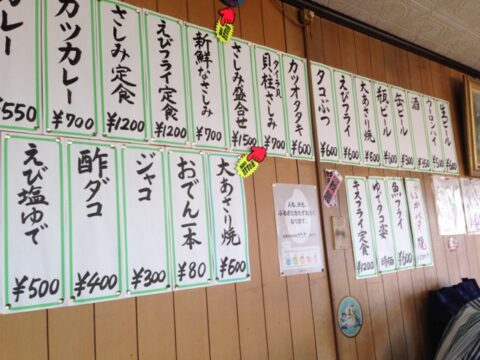 カレー
¥550
カツカレー
¥700
さしみ定食
¥1200
えびフライ定食
¥1200
新鮮なさしみ
¥700
さしみ盛合せ
¥1500
タイラ貝
貝柱さしみ
¥700
カツオタタキ
¥600
タコぶつ
¥600
えびフライ
¥600
大あさり焼
¥600
瓶ビール
¥600
缶ビール
¥500
酒
ウーロンハイ
生ビール
えび塩ゆで
¥500
酢ダコ
¥400
ジャコ
¥300
おでん一本
¥80
大あさり焼
¥600
キスフライ定食
¥1200
ゆでタコ
時価
魚フライ
¥600